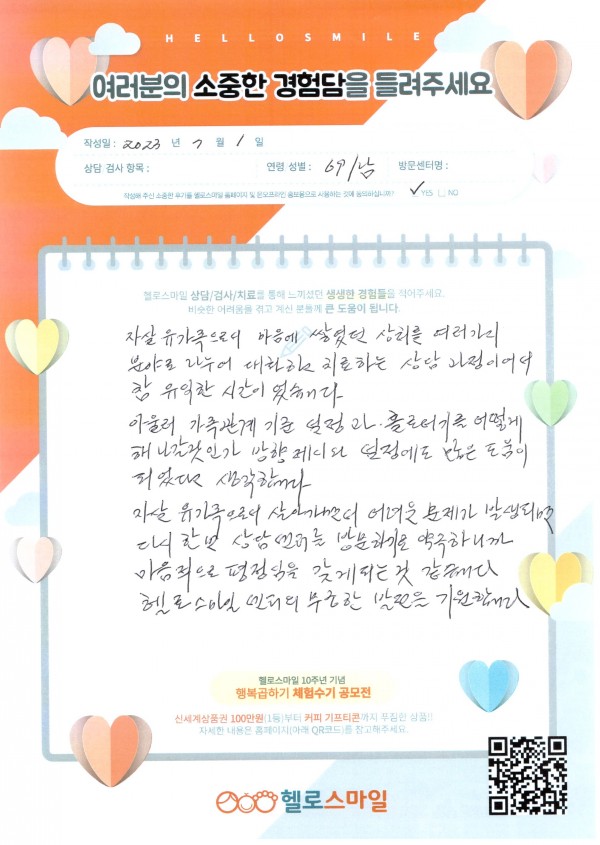 HELLOSMILE
여러분의 소중한 경험담을 들려주세요
작성일 : 2023 년 7 월 1 일
상담 검사 항목 : 연령 성별 : 69/남 방문센터명 :
작성해 주신 소중한 후기를 헬로스마일 홈페이지 및 온오프라인 홍보용으로 사용하는 것에 동의하십니까? ✓ YES □ NO
헬로스마일 상담/검사/치료를 통해 느끼셨던 생생한 경험들을 적어주세요.
비슷한 어려움을 겪고 계신 분들께 큰 도움이 됩니다.
자살 유가족으로서 마음에 쌓였던 상처를 여러가지
분야로 나누어 대화하고 치료하는 상담 과정이어서
참 유익한 시간이었습니다.
아울러 가족관계 기준 설정과 홀로서기를 어떻게
해 나갈것인가 방향 제시와 설정에도 많은 도움이
되었다고 생각합니다.
자살 유가족으로서 살아가면서 어려운 문제가 발생되면
다시 한번 상담센터를 방문하기로 약속하니까
마음적으로 평정심을 갖게되는것 같습니다
헬로스마일 센터의 무궁한 발전을 기원합니다
헬로스마일 10주년 기념
행복곱하기 체험수기 공모전
신세계상품권 100만원(1등)부터 커피 기프티콘까지 푸짐한 상품!!
자세한 내용은 홈페이지(아래 QR코드)를 참고해주세요.
헬로스마일